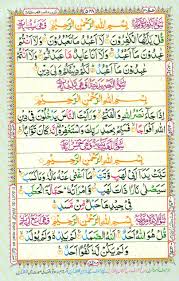 بِسْمِ اللهِ الرَّحْمٰنِ الرَّحِيْمِ
قُلْ يٰۤاَيُّهَا الْكٰفِرُوْنَ لَاۤ اَعْبُدُ مَا تَعْبُدُوْنَ وَلَاۤ اَنْتُمْ
عٰبِدُوْنَ مَاۤ اَعْبُدُ وَلَاۤ اَنَا عَابِدٌ مَّا عَبَدْتُّمْ وَلَاۤ اَنْتُمْ
عٰبِدُوْنَ مَاۤ اَعْبُدُ لَكُمْ دِيْنُكُمْ وَلِيَ دِيْنِ
بِسْمِ اللهِ الرَّحْمٰنِ الرَّحِيْمِ
اِذَا جَآءَ نَصْرُ اللهِ وَالْفَتْحُ وَرَاَيْتَ النَّاسَ يَدْخُلُوْنَ فِيْ دِيْنِ
اللهِ اَفْوَاجًا فَسَبِّحْ بِحَمْدِ رَبِّكَ وَاسْتَغْفِرْهُ اِنَّهٗ كَانَ تَوَّابًا
بِسْمِ اللهِ الرَّحْمٰنِ الرَّحِيْمِ
تَبَّتْ يَدَاۤ اَبِيْ لَهَبٍ وَّتَبَّ مَاۤ اَغْنٰى عَنْهُ مَالُهٗ وَمَا كَسَبَ
سَيَصْلٰى نَارًا ذَاتَ لَهَبٍ وَّامْرَاَتُهٗ حَمَّالَةَ الْحَطَبِ
فِيْ جِيْدِهَا حَبْلٌ مِّنْ مَّسَدٍ
بِسْمِ اللهِ الرَّحْمٰنِ الرَّحِيْمِ
قُلْ هُوَ اللهُ اَحَدٌ اَللهُ الصَّمَدُ لَمْ يَلِدْ وَلَمْ يُوْلَدْ
وَلَمْ يَكُنْ لَّهٗ كُفُوًا اَحَدٌ